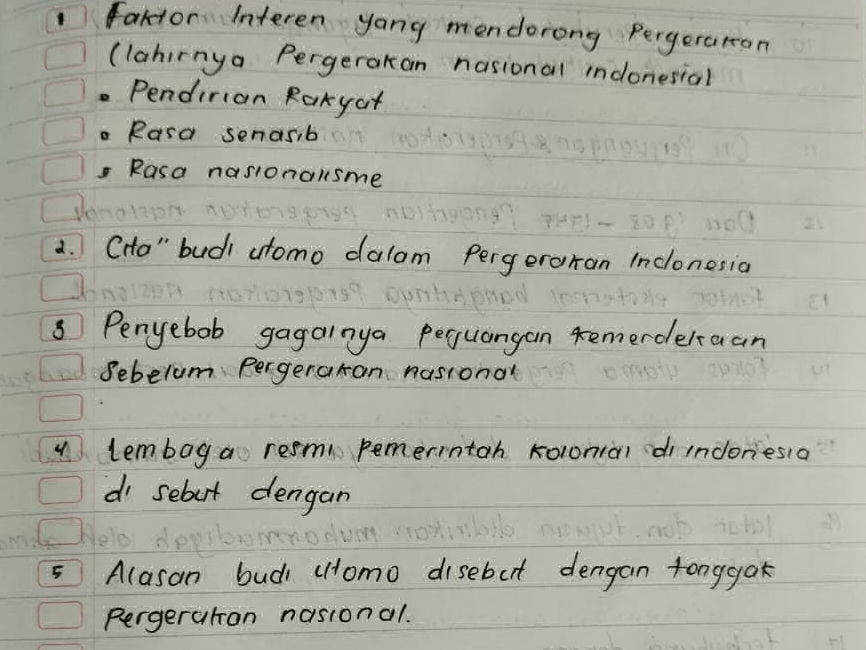 1 Faktor Interen yang mendorong Pergerakan
(lahirnya Pergerakan nasional indonesia)
• Pendirian Rakyat
• Rasa senasib
• Rasa nasionalisme
2. Cita" budi utomo dalam Pergerakan Indonesia
3 Penyebab gagalnya perjuangan kemerdekaan
Sebelum Pergerakan nasional
4 lembaga resmi pemerintah kolonial di indonesia
di sebut dengan
5 Alasan budi utomo disebut dengan tonggak
Pergerakan nasional.